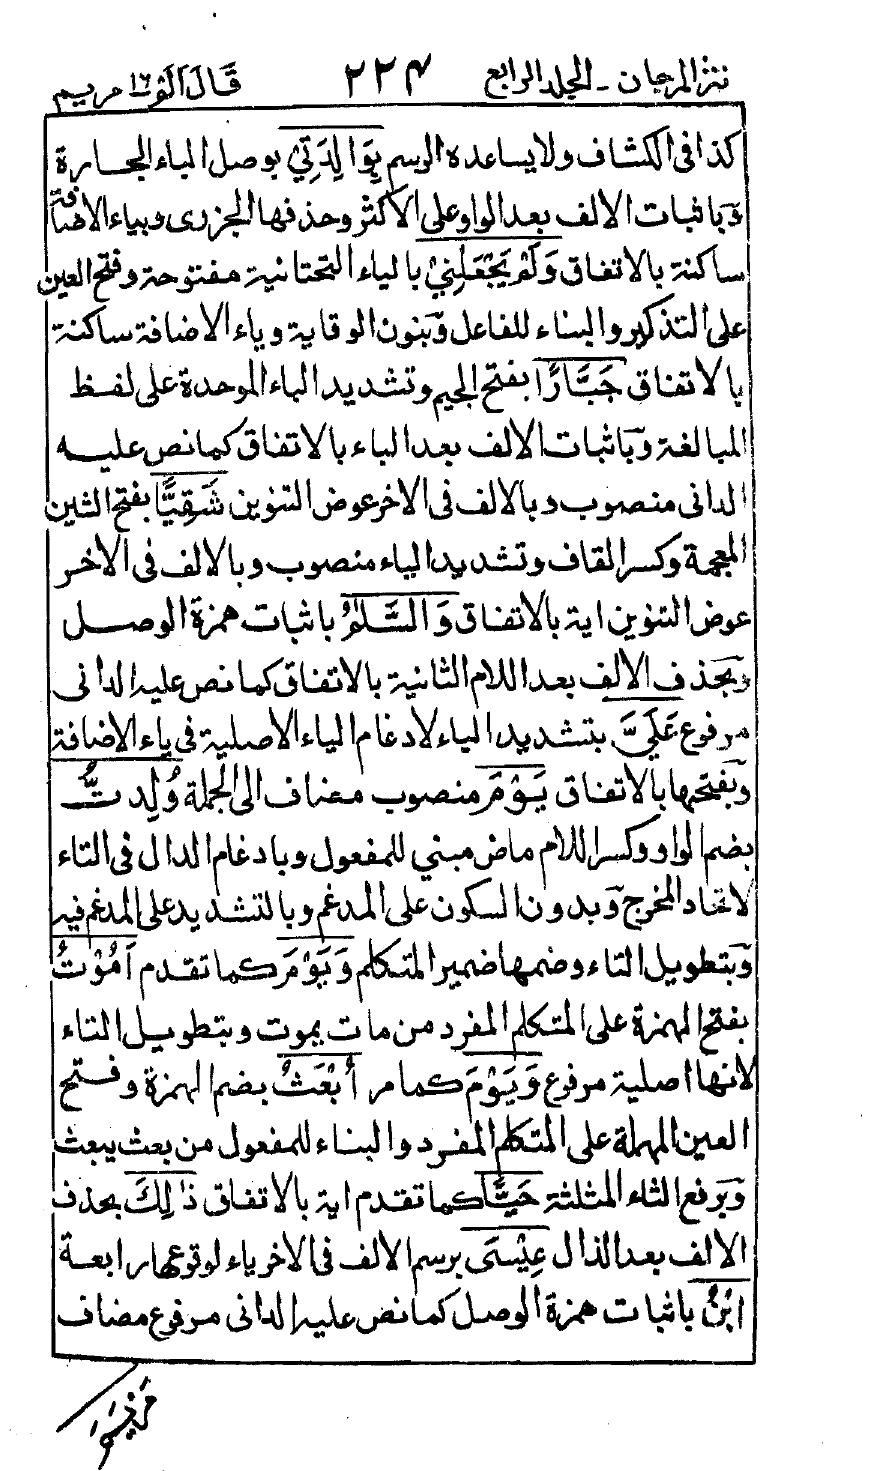 نثر المرجان - الجلد الرابع ٢٢٤ قال الم ١٦ مريم
كذا فى الكشاف ولا يساعده الرسم بِوَالِدَتِيْ بوصل الباء الجارة
وَباثبات الالف بعد الواو على الأكثر وحذفها الجزرى وبياء الاضافة
ساكنة بالاتفاق وَلَمْ يَجْعَلْنِيْ بالياء التحتانية مفتوحة وفتح العين
على التذكير والبناء للفاعل وَبنون الوقاية وياء الاضافة ساكنة
بالاتفاق جَبَّارًا بفتح الجيم وتشديد الباء الموحدة على لفظ
المبالغة وَباثبات الالف بعد الباء بالاتفاق كما نص عليه
الدانى منصوب وبالالف فى الاخر عوض التنوين شَقِيًّا بفتح الشين
المعجمة وكسر القاف وتشديد الياء منصوب وبالالف فى الأخر
عوض التنوين اية بالاتفاق وَالسَّلٰمُ باثبات همزة الوصل
وَبحذف الالف بعد اللام الثانية بالاتفاق كما نص عليه الدانى
مرفوع عَلَيَّ بتشديد الياء لادغام الياء الاصلية فى ياء الاضافة
وَبفتحها بالاتفاق يَوْمَ منصوب مضاف الى الجملة وُلِدتُّ
بضم الواو وكسر اللام ماض مبني للمفعول وبادغام الدال فى التاء
لاتحاد المخرج وَبدون السكون على المدغم وبالتشديد على المدغم فيه
وَبتطويل التاء وضمها ضمير المتكلم وَيَوْمَ كما تقدم اَمُوْتُ
بفتح الهمزة على المتكلم المفرد من مات يموت وبتطويل التاء
لانها اصلية مرفوع وَيَوْمَ كما مر أُبْعَثُ بضم الهمزة وفتح
العين المهملة على المتكلم المفرد والبناء للمفعول من بعث يبعث
وَبرفع الثاء المثلثة حَيًّا كما تقدم اية بالاتفاق ذٰلِكَ بحذف
الالف بعد الذال عِيْسَى برسم الالف فى الاخر ياء لوقوعها رابعة
ابْنُ باثبات همزة الوصل كما نص عليه الدانى مرفوع مضاف